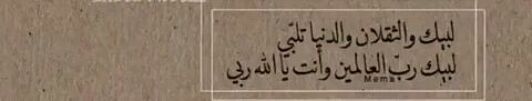 لبيك والثقلان والدنيا تلبّي
لبيك ربّ العالمين وأنت يا الله ربي
Mems